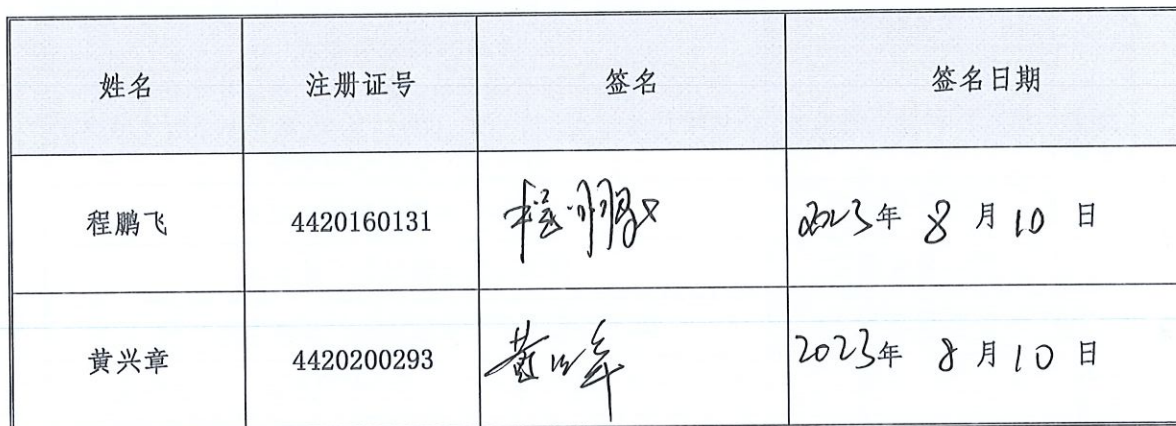 姓名 注册证号 签名 签名日期
程鹏飞 4420160131 程鹏飞 2023年 8 月 10 日
黄兴章 4420200293 黄兴章 2023年 8 月 10 日